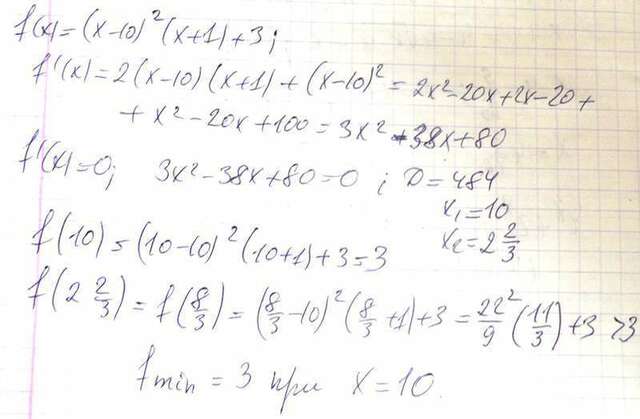 f(x)=(x-10)²(x+1)+3;
f'(x)=2(x-10)(x+1)+(x-10)²=2x²-20x+2x-20+
+x²-20x+100=3x²-38x+80
f'(x)=0; 3x²-38x+80=0; D=484
x₁=10
x₂=2 2/3
f(10)=(10-10)²(10+1)+3=3
f(2 2/3)=f(8/3)=(8/3-10)²(8/3+1)+3=22²/9(11/3)+3>3
fmin=3 при x=10